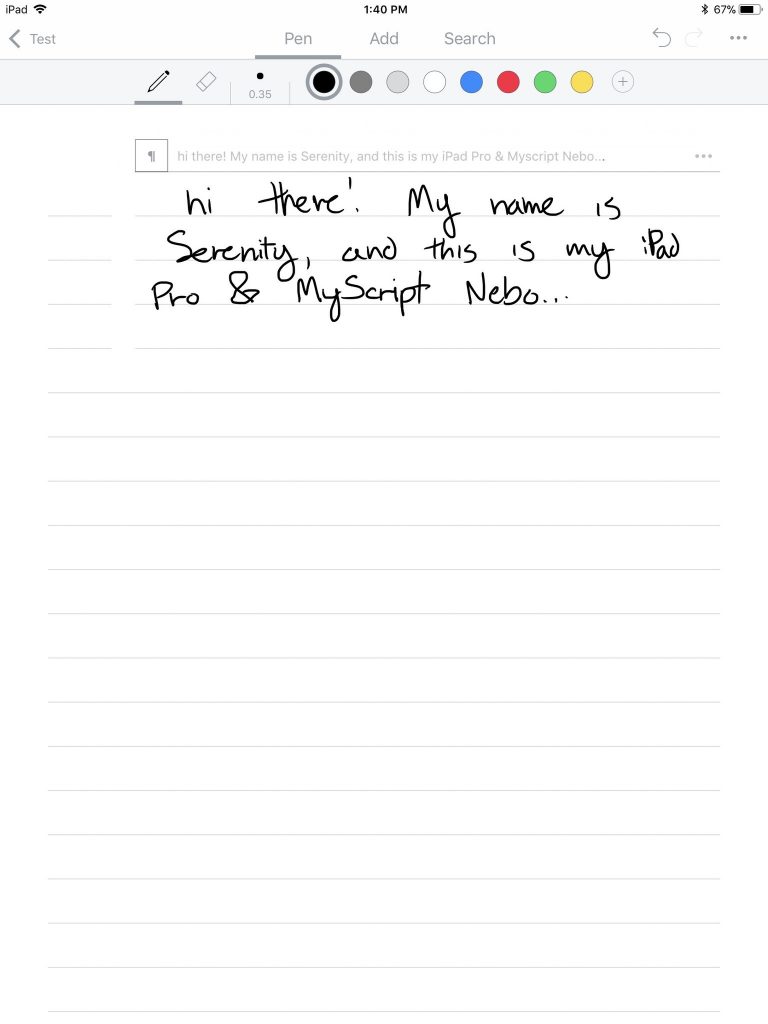 iPad 1:40 PM 67%
Test Pen Add Search
0.35
¶ hi there! My name is Serenity, and this is my iPad Pro & Myscript Nebo...
hi there! My name is
Serenity, and this is my iPad
Pro & MyScript Nebo...